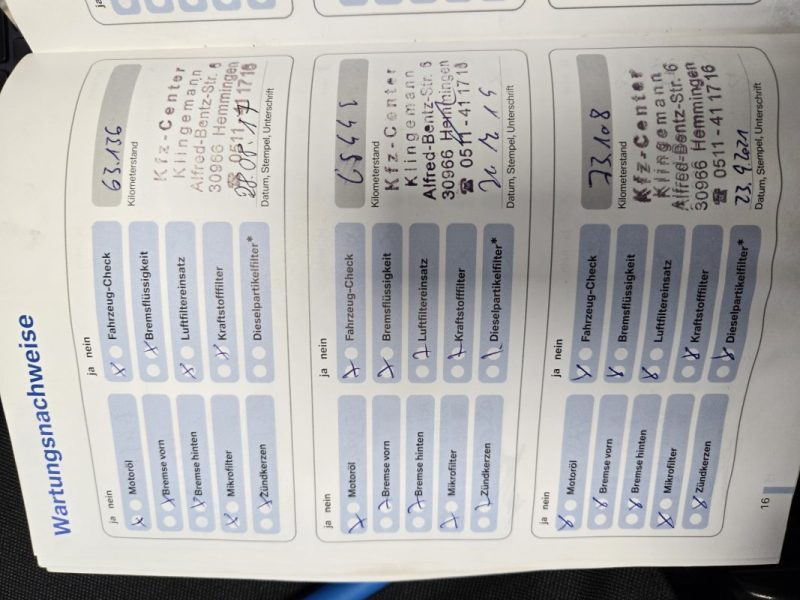 Wartungsnachweise
ja nein
Motoröl
Bremse vorn
Bremse hinten
Mikrofilter
Zündkerzen
ja nein
Fahrzeug-Check
Bremsflüssigkeit
Luftfiltereinsatz
Kraftstofffilter
Dieselpartikelfilter*
63.136
Kilometerstand
Kfz-Center
Klingemann
Alfred-Bentz-Str. 6
30966 Hemmingen
☎ 0511-41 1716
Datum, Stempel, Unterschrift
ja nein
Motoröl
Bremse vorn
Bremse hinten
Mikrofilter
Zündkerzen
ja nein
Fahrzeug-Check
Bremsflüssigkeit
Luftfiltereinsatz
Kraftstofffilter
Dieselpartikelfilter*
Kilometerstand
Kfz-Center
Klingemann
Alfred-Bentz-Str. 6
30966 Hemmingen
☎ 0511-41 1716
Datum, Stempel, Unterschrift
ja nein
Motoröl
Bremse vorn
Bremse hinten
Mikrofilter
Zündkerzen
ja nein
Fahrzeug-Check
Bremsflüssigkeit
Luftfiltereinsatz
Kraftstofffilter
Dieselpartikelfilter*
73.108
Kilometerstand
Kfz-Center
Klingemann
Alfred-Bentz-Str. 6
30966 Hemmingen
☎ 0511-41 1716
23.9.2021
Datum, Stempel, Unterschrift
16
ja